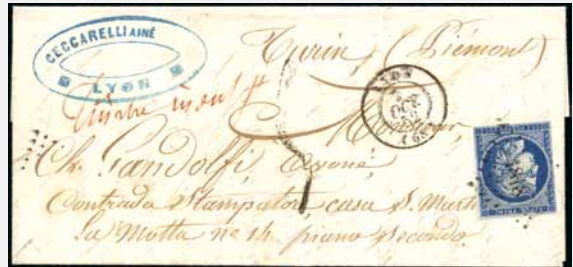 CECCARELLI AINÉ
LYON
Turin (Piémont)
Timbre insuff
LYON
OCT.
(68)
Monsieur
Ch. Gandolfi Avoué
Contrada Stampatori, casa S. Mart
La Motta nº 14 piano secondo.